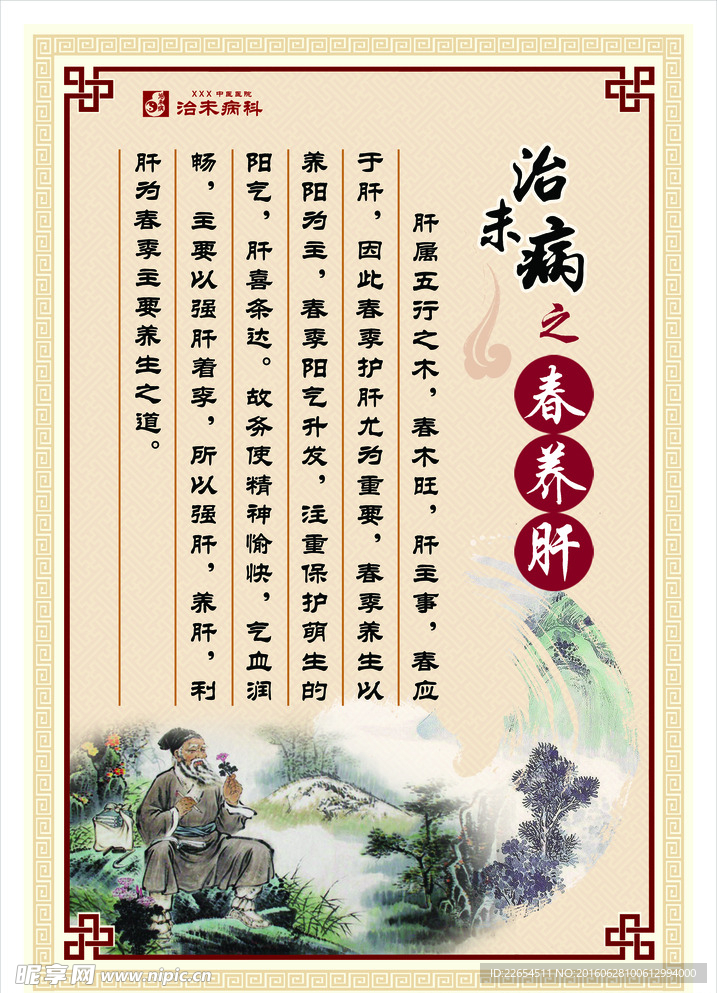 XXX 中医医院
治未病科
治未病
之
春养肝
肝属五行之木，春木旺，肝主事，春应
于肝，因此春季护肝尤为重要，春季养生以
养阳为主，春季阳气升发，注重保护萌生的
阳气，肝喜条达。故务使精神愉快，气血润
畅，主要以强肝着李，所以强肝，养肝，利
肝为春季主要养生之道。
昵享网 www.nipic.cn
ID:22654511 NO:20160628100612994000